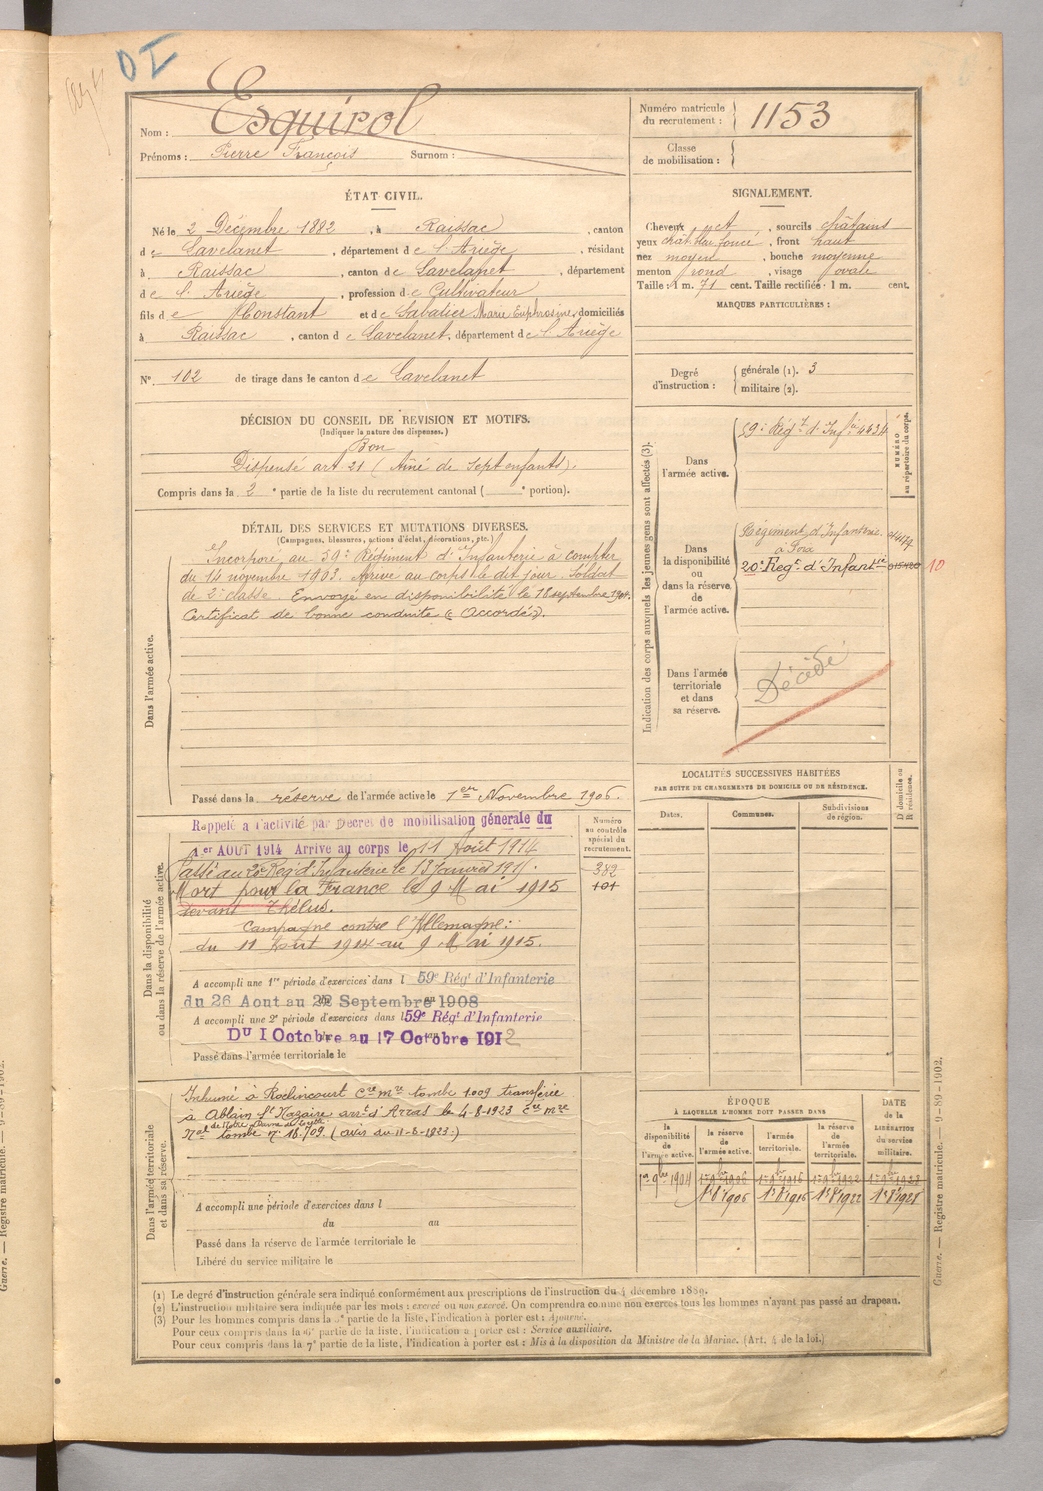 OI
Nom : Esquirol
Prénoms : Pierre François Surnom :
Numéro matricule du recrutement : 1153
Classe de mobilisation :
ÉTAT CIVIL.
Né le 2 Décembre 1882, à Raissac, canton
de Lavelanet, département de l'Ariège, résidant
à Raissac, canton de Lavelanet, département
de l'Ariège, profession de Cultivateur
fils de Constant et de Sabatier Marie Euphrosine, domiciliés
à Raissac, canton de Lavelanet, département de l'Ariège
N°. 102 de tirage dans le canton de Lavelanet
SIGNALEMENT.
Cheveux et, sourcils châtains
yeux foncé, front haut
nez moyen, bouche moyenne
menton rond, visage ovale
Taille : 1 m. 71 cent. Taille rectifiée : 1 m. cent.
MARQUES PARTICULIÈRES :
Degré d'instruction : générale (1). 3
militaire (2).
DÉCISION DU CONSEIL DE REVISION ET MOTIFS.
(Indiquer la nature des dispenses.)
Bon
Dispensé art. 21 (Aîné de sept enfants).
Compris dans la 2e partie de la liste du recrutement cantonal ( e portion).
DÉTAIL DES SERVICES ET MUTATIONS DIVERSES.
(Campagnes, blessures, actions d'éclat, décorations, etc.)
Dans l'armée active.
Incorporé au 59e Régiment d'Infanterie à compter
du 14 novembre 1903. Arrivé au corps le dit jour. Soldat
de 2e classe. Envoyé en disponibilité le 18 septembre 1904.
Certificat de bonne conduite "Accordé".
Passé dans la réserve de l'armée active le 1er Novembre 1906.
Indication des corps auxquels les jeunes gens sont affectés (3).
NUMÉRO au répertoire du corps.
Dans l'armée active.
59e Régt d'Infie 4434
Dans la disponibilité ou dans la réserve de l'armée active.
Régiment d'Infanterie
à Foix
20e Regt d'Infantie 10
Dans l'armée territoriale et dans sa réserve.
Décédé
LOCALITÉS SUCCESSIVES HABITÉES
PAR SUITE DE CHANGEMENTS DE DOMICILE OU DE RÉSIDENCE.
Dates. Communes. Subdivisions de région. D domicile ou R résidence.
Dans la disponibilité ou dans la réserve de l'armée active.
Numéro au contrôle spécial du recrutement.
382
101
Rappelé à l'activité par Décret de mobilisation générale du
1er AOUT 1914 Arrivé au corps le 11 Août 1914
Passé au 20e Reg d'Infanterie le 13 Janvier 1915.
Mort pour la France le 9 Mai 1915
devant Thélus.
Campagne contre l'Allemagne :
du 11 Aout 1914 au 9 Mai 1915.
A accompli une 1re période d'exercices dans l 59e Régt d'Infanterie
du 26 Aout au 22 Septembre 1908
A accompli une 2e période d'exercices dans l 59e Régt d'Infanterie
Du 1 Octobre au 17 Octobre 1912
Passé dans l'armée territoriale le
Dans l'armée territoriale et dans sa réserve.
Inhumé à Roclincourt Cre Mre tombe 1009 transférée
à Ablain St Nazaire arrt d'Arras le 4-8-1923 Cre Mre
Nal de Notre Dame de Lorette tombe n° 18.709 (avis du 11-8-1923.)
A accompli une période d'exercices dans l
du au
Passé dans la réserve de l'armée territoriale le
Libéré du service militaire le
ÉPOQUE
À LAQUELLE L'HOMME DOIT PASSER DANS
la disponibilité de l'armée active. la réserve de l'armée active. l'armée territoriale. la réserve de l'armée territoriale.
DATE de la LIBÉRATION du service militaire.
1er 9bre 1904 1er 9bre 1906 1er 9bre 1916 1er 9bre 1922 1er 9bre 1928
1r 8e 1906 1r 8e 1916 1r 8e 1922 1r 8e 1928
(1) Le degré d'instruction générale sera indiqué conformément aux prescriptions de l'instruction du 4 décembre 1889.
(2) L'instruction militaire sera indiquée par les mots : exercé ou non exercé. On comprendra comme non exercés tous les hommes n'ayant pas passé au drapeau.
(3) Pour les hommes compris dans la 5e partie de la liste, l'indication à porter est : Ajourné.
Pour ceux compris dans la 6e partie de la liste, l'indication à porter est : Service auxiliaire.
Pour ceux compris dans la 7e partie de la liste, l'indication à porter est : Mis à la disposition du Ministre de la Marine. (Art. 4 de la loi.)
Guerre. — Registre matricule. — 9-89-1902.
Guerre. — Registre matricule. — 9-89-1902.